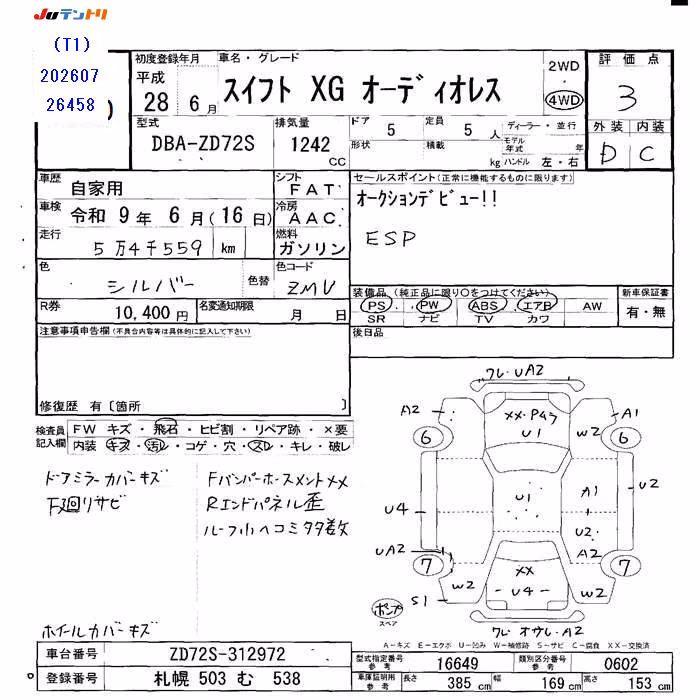 Juテントリ
(T1)
202607
26458
初度登録年月 車名・グレード 評価点
平成 28年 6月 スイフト XG オーディオレス 2WD・4WD 3
型式 排気量 ドア 5 定員 5人 ディーラー・並行 外装 内装
DBA-ZD72S 1242 CC 形状 積載 kg モデル年式 年 ハンドル 左・右 D C
車歴 自家用 シフト FAT セールスポイント(正常に機能するものに限ります)
車検 令和 9年 6月(16日) 冷房 AAC オークションデビュー!!
走行 5万4千559 km 燃料 ガソリン ESP
色 シルバー 色替 色コード ZMV
装備品 (純正品に限り○をつけてください) 新車保証書
R券 10,400円 名変通知期限 月 日 PS PW ABS エアB AW 有・無
SR ナビ TV カワ
注意事項申告欄(不具合内容等は具体的に記入して下さい) 後日品
修復歴 有〔箇所 〕
検査員記入欄 FW キズ・飛石・ヒビ割・リペア跡・×要
内装 キズ・汚レ・コゲ・穴・スレ・キレ・破レ
ドアミラーカバーキズ FバンパーホースメントXX
F廻リサビ Rエンドパネル歪
ルーフ小ヘコミ多数
ホイールカバーキズ
ワレ・UA2
A2 XX・P4ラ A1
6 U1 W2 6
U1 A1 U2
U4 U2
UA2 A2
7 XX W2 7
W2 -U4-
S1
ポンプ
スペア
ワレ オサレ・A2
A-キズ E-エクボ U-凹み W-補修跡 S-サビ C-腐食 XX-交換済
車台番号 ZD72S-312972
型式指定番号 参考 16649 類別区分番号 参考 0602
登録番号 札幌 503 む 538
車庫証明用 参考 長さ 385 cm 幅 169 cm 高さ 153 cm